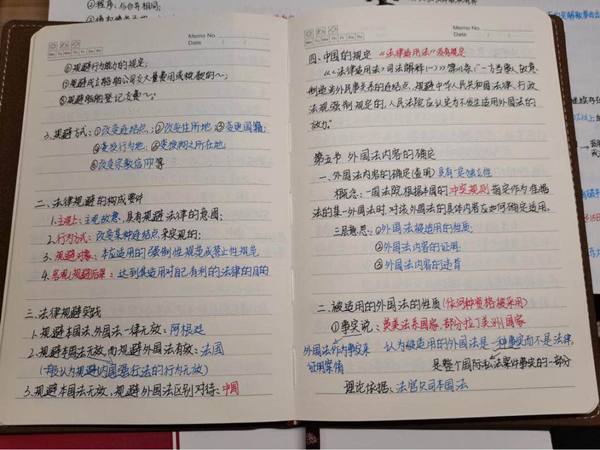 ③程序：与合并相同；
Memo No.
Date
④规避行为能力的规定；
⑥规避船舶登记交费～；
3.规避方式：①改变连结点；②改变住所地；③变更国籍；
④变换行为地；⑤变换物之所在地；
⑥改变宗教信仰等
二、法律规避的构成要件
1.主观上：主观故意，具有规避法律的意图；
2.行为方式：改变某种连结点来实现的；
3.规避对象：本应适用的强制性规范或禁止性规范
4.客观/规避后果：达到其适用对自己有利的法律的目的
三、法律规避实践
1.规避本国法、外国法一律无效：阿根廷
2.规避本国法无效，而规避外国法有效：法国
（一般认为规避内国强行法的行为无效）
3.规避本国法无效，规避外国法区别对待：中国
Memo No.
Date
四、中国的规定 《法律适用法》没有规定
《《法律适用法》司法解释（一）》第11条：“一方当事人故意
制造涉外民事关系的连结点，规避中华人民共和国法律、行政
法规强制规定的，人民法院应认定为不发生适用外国法的
效力。”
第五节 外国法内容的确定
一、外国法内容的确定（查明）具有一定独立性
概念：一国法院根据本国的冲突规则指定作为准据
法的是一外国法时，对该外国法的具体内容应如何确定适用。
三层意思：①外国法被适用的性质；
②外国法内容的证明；
③外国法内容的违背
二、被适用的外国法的性质（依何种资格被采用）
①事实说：英美法系国家、部分拉丁美洲国家
外国法作为事实来 认为被适用的外国法是一种事实而不是法律，
证明案情 是整个国际私法案件事实的一部分
理论依据：法官只司本国法